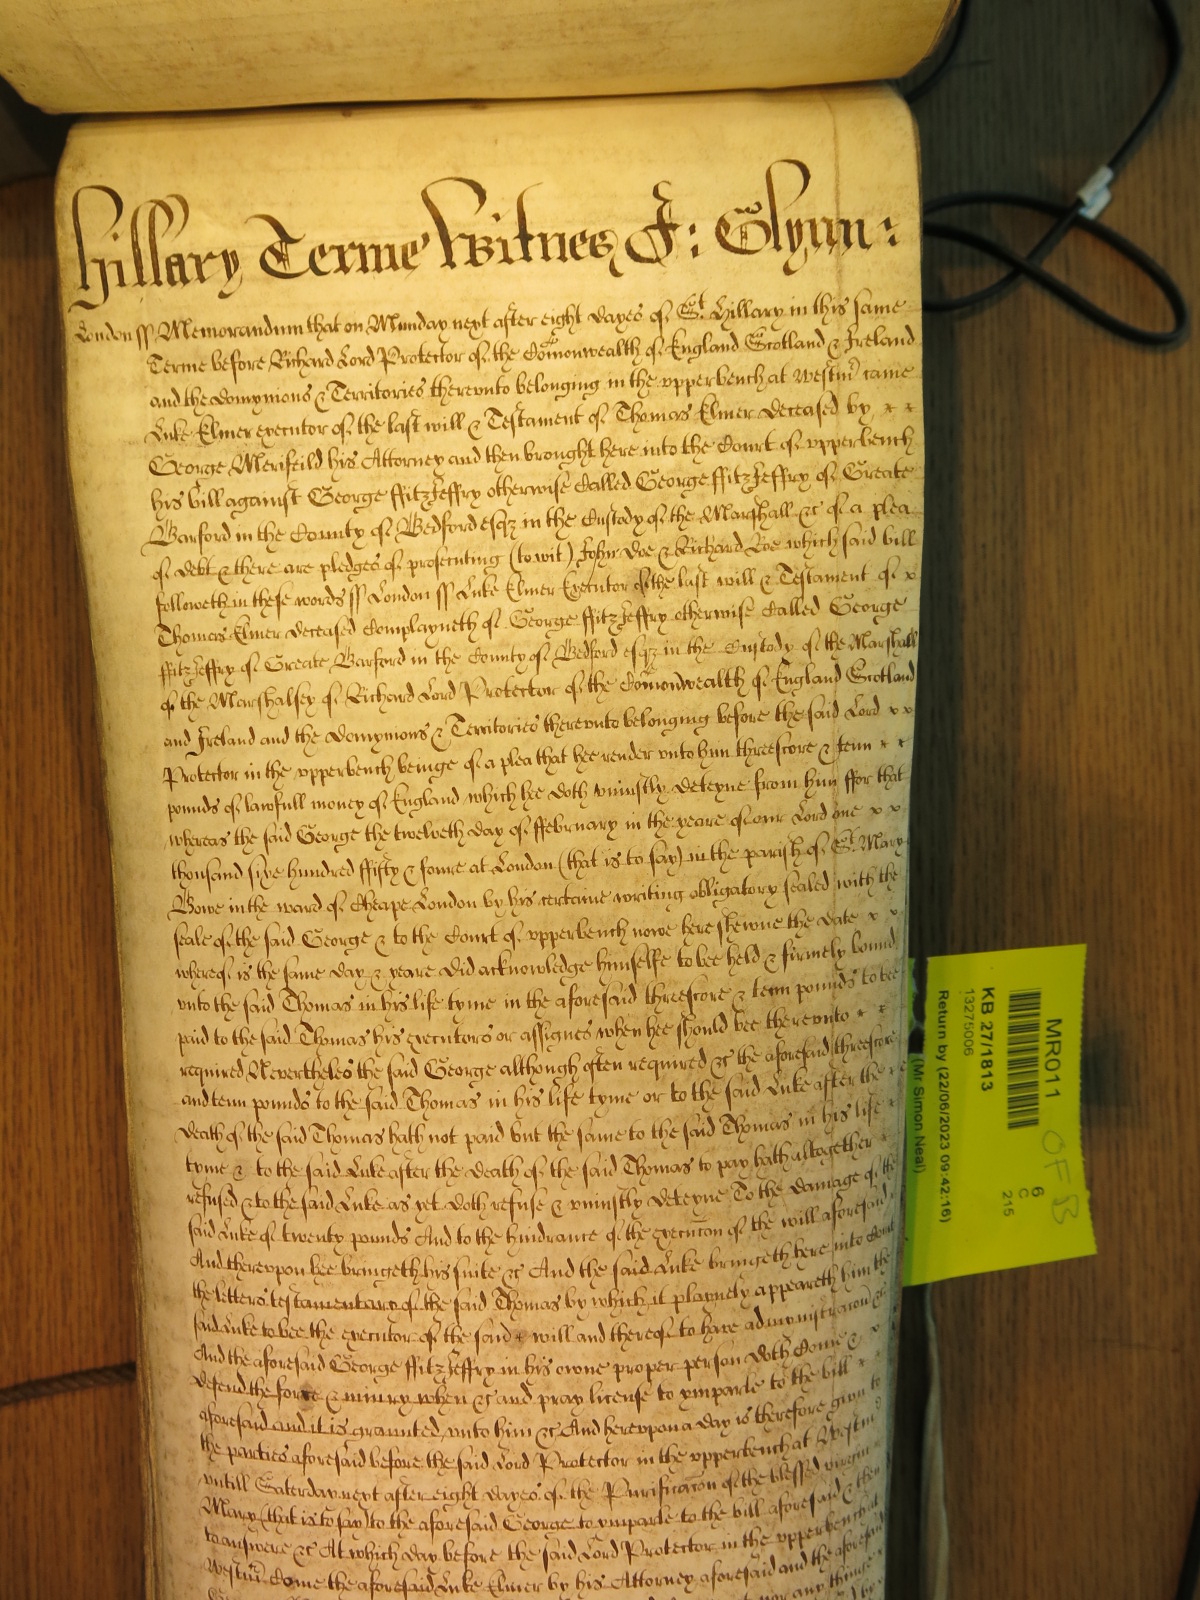 Hillary Terme Witnes J: Glynn:
London ss Memorandum that on Munday next after eight dayes of St. Hillary in this same
Terme before Richard Lord Protector of the Comonwealth of England Scotland & Ireland
and the domynions & Territories therevnto belonging in the vpperbench at Westmr came
Luke Elmer executor of the last will & Testament of Thomas Elmer deceased by x x
George Merifeild his Attorney and then brought here into the Court of vpperbench
his bill against George ffitzJeffry otherwise Called George ffitzJeffry of Greate
Barford in the County of Bedford esqz in the Custody of the Marshall &c of a plea
of debt & there are pledges of prosecuting (to wit) John Doe & Richard Roe which said bill
followeth in these words ss London ss Luke Elmer Executor of the last will & Testament of x
Thomas Elmer deceased Complayneth of George ffitzJeffry otherwise Called George
ffitzJeffry of Greate Barford in the County of Bedford esqz in the Custody of the Marshall
of the Marshalsey of Richard Lord Protector of the Comonwealth of England Scotland
and Ireland and the domynions & Territories therevnto belonging before the said Lord x x
Protector in the vpperbench beinge of a plea that hee render vnto him threescore & tenn x x
pounds of lawfull money of England which hee doth vniustly deteyne from him ffor that
whereas the said George the twelveth day of ffebruary in the yeare of our Lord one x x
thousand sixe hundred ffifty & foure at London (that is to say) in the parish of St. Mary
Bowe in the ward of Cheape London by his certaine writing obligatory sealed with the
seale of the said George & to the Court of vpperbench nowe here shewne the date x x
whereof is the same day & yeare did acknowledge himselfe to bee held & firmely bound
vnto the said Thomas in his life tyme in the aforesaid threescore & tenn pounds to bee
paid to the said Thomas his executors or assignes when hee should bee therevnto x x
required Nevertheles the said George although often required &c the aforesaid threescore
and tenn pounds to the said Thomas in his life tyme or to the said Luke after the x
death of the said Thomas hath not paid but the same to the said Thomas in his life x
tyme & to the said Luke after the death of the said Thomas to pay hath altogether
refused & to the said Luke as yet doth refuse & vniustly deteyne To the damage of the
said Luke of twenty pounds And to the hindrance of the execucon of the will aforesaid
And therevpon hee bringeth his suite &c And the said Luke bringeth here into Court
the letters testamentary of the said Thomas by which it playnely appeareth him the
said Luke to bee the executor of the said x will and thereof to have administracon &c
And the aforesaid George ffitzJeffry in his owne proper person doth Come & x
defend the force & iniury when &c and pray license to ymparle to the bill x x
aforesaid and it is graunted vnto him &c And herevpon a day is therefore given to
the parties aforesaid before the said Lord Protector in the vpperbench at Westmr
vntill Saterday next after eight dayes of the Purificacon of the blessed virgin
Mary (that is to say) to the aforesaid George to ymparle to the bill aforesaid & then
to answere &c At which day before the said Lord Protector in the vpperbench at
Westmr Come the aforesaid Luke Elmer by his Attorney aforesaid and the aforesaid
nor any thinge
MR011
KB 27/1813
13275006
Return by (22/06/2023 09:42:16)
(Mr Simon Neal)
6
C
215
OFB